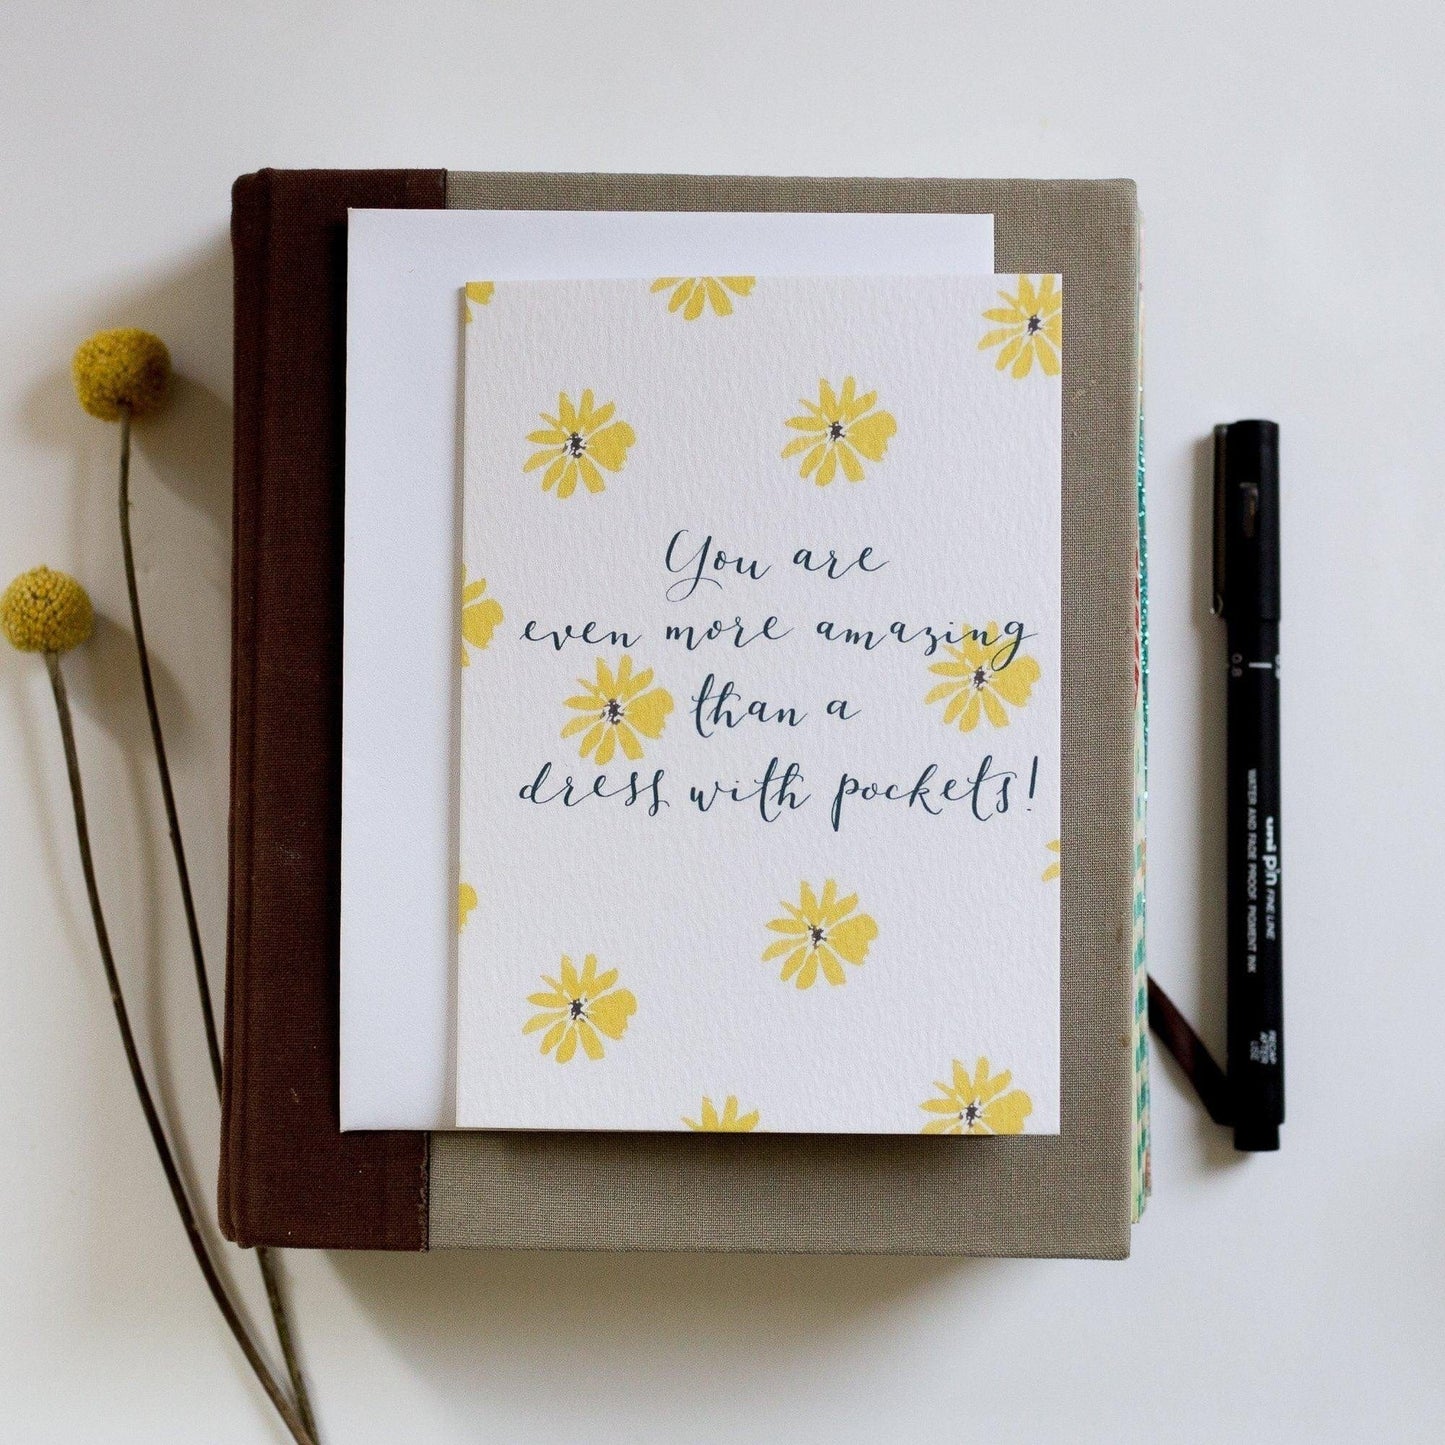 You are
even more amazing
than a
dress with pockets!
0.8
uni pin FINE LINE
WATER AND FADE PROOF, PIGMENT INK
RECAP
AFTER
USE